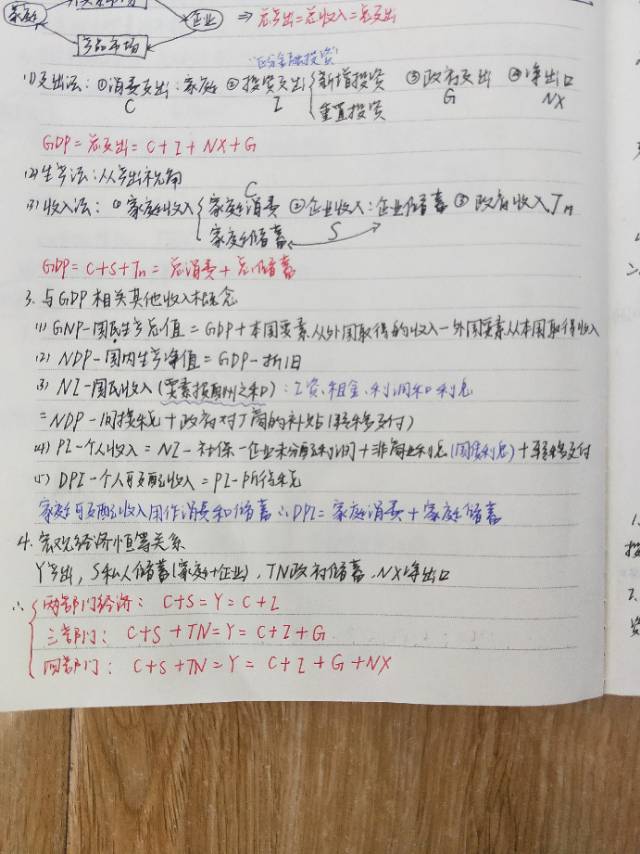 家庭 企业 ⇒ 总产出=总收入=总支出
产品市场
"区分金融投资"
(1)支出法：①消费支出：家庭 ②投资支出{新增投资 ③政府支出 ④净出口
C I 重置投资 G NX
GDP=总支出=C+I+NX+G
(2)生产法：从产出视角
(3)收入法：①家庭收入{家庭消费 ②企业收入：企业储蓄 ③政府收入Tn
C 家庭储蓄 S
GDP=C+S+Tn=总消费+总储蓄
3.与GDP相关其他收入概念
(1)GNP-国民生产总值=GDP+本国要素从外国取得的收入-外国要素从本国取得收入
(2)NDP-国内生产净值=GDP-折旧
(3)NI-国民收入(要素报酬之和)：工资、租金、利润和利息
=NDP-间接税+政府对厂商的补贴(转移支付)
(4)PI-个人收入=NI-社保-企业未分配利润+非商业利息(国债利息)+转移支付
(5)DPI-个人可支配收入=PI-所得税
家庭可支配收入用作消费和储蓄∴DPI=家庭消费+家庭储蓄
4.宏观经济恒等关系
Y产出，S私人储蓄(家庭+企业)，TN政府储蓄、NX净出口
∴{两部门经济：C+S=Y=C+I
三部门：C+S+TN=Y=C+I+G
四部门：C+S+TN=Y=C+I+G+NX